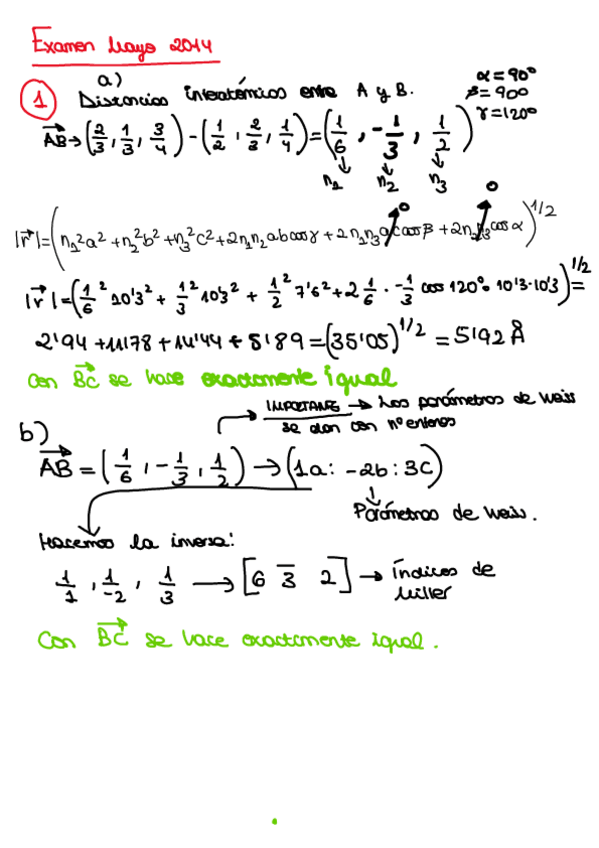 Examen Mayo 2014
a)
1 Distancias interatómicas entre A y B.
α=90º
β=90º
γ=120º
AB→(2/3, 1/3, 3/4)-(1/2, 2/3, 1/4)=(1/6, -1/3, 1/2)
n₁ n₂ n₃
0 0
|r|=(n₁²a²+n₂²b²+n₃²c²+2n₁n₂abcosγ+2n₁n₃accosβ+2n₂n₃cosα)^1/2
|r|=(1/6² 10'3²+1/3² 10'3²+1/2² 7'6²+2 1/6·-1/3 cos120º·10'3·10'3)^1/2=
2'94+11'78+14'44+5'89=(35'05)^1/2=5'92Å
Con BC se hace exactamente igual
IMPORTANTE→Los parámetros de Weis
se dan con nº enteros
b)
AB=(1/6, -1/3, 1/2)→(1a: -2b: 3c)
Parámetros de Weis.
Hacemos la inversa:
1/1, 1/-2, 1/3 →[6 3̅ 2]→Índices de
Miller
Con BC se hace exactamente igual.